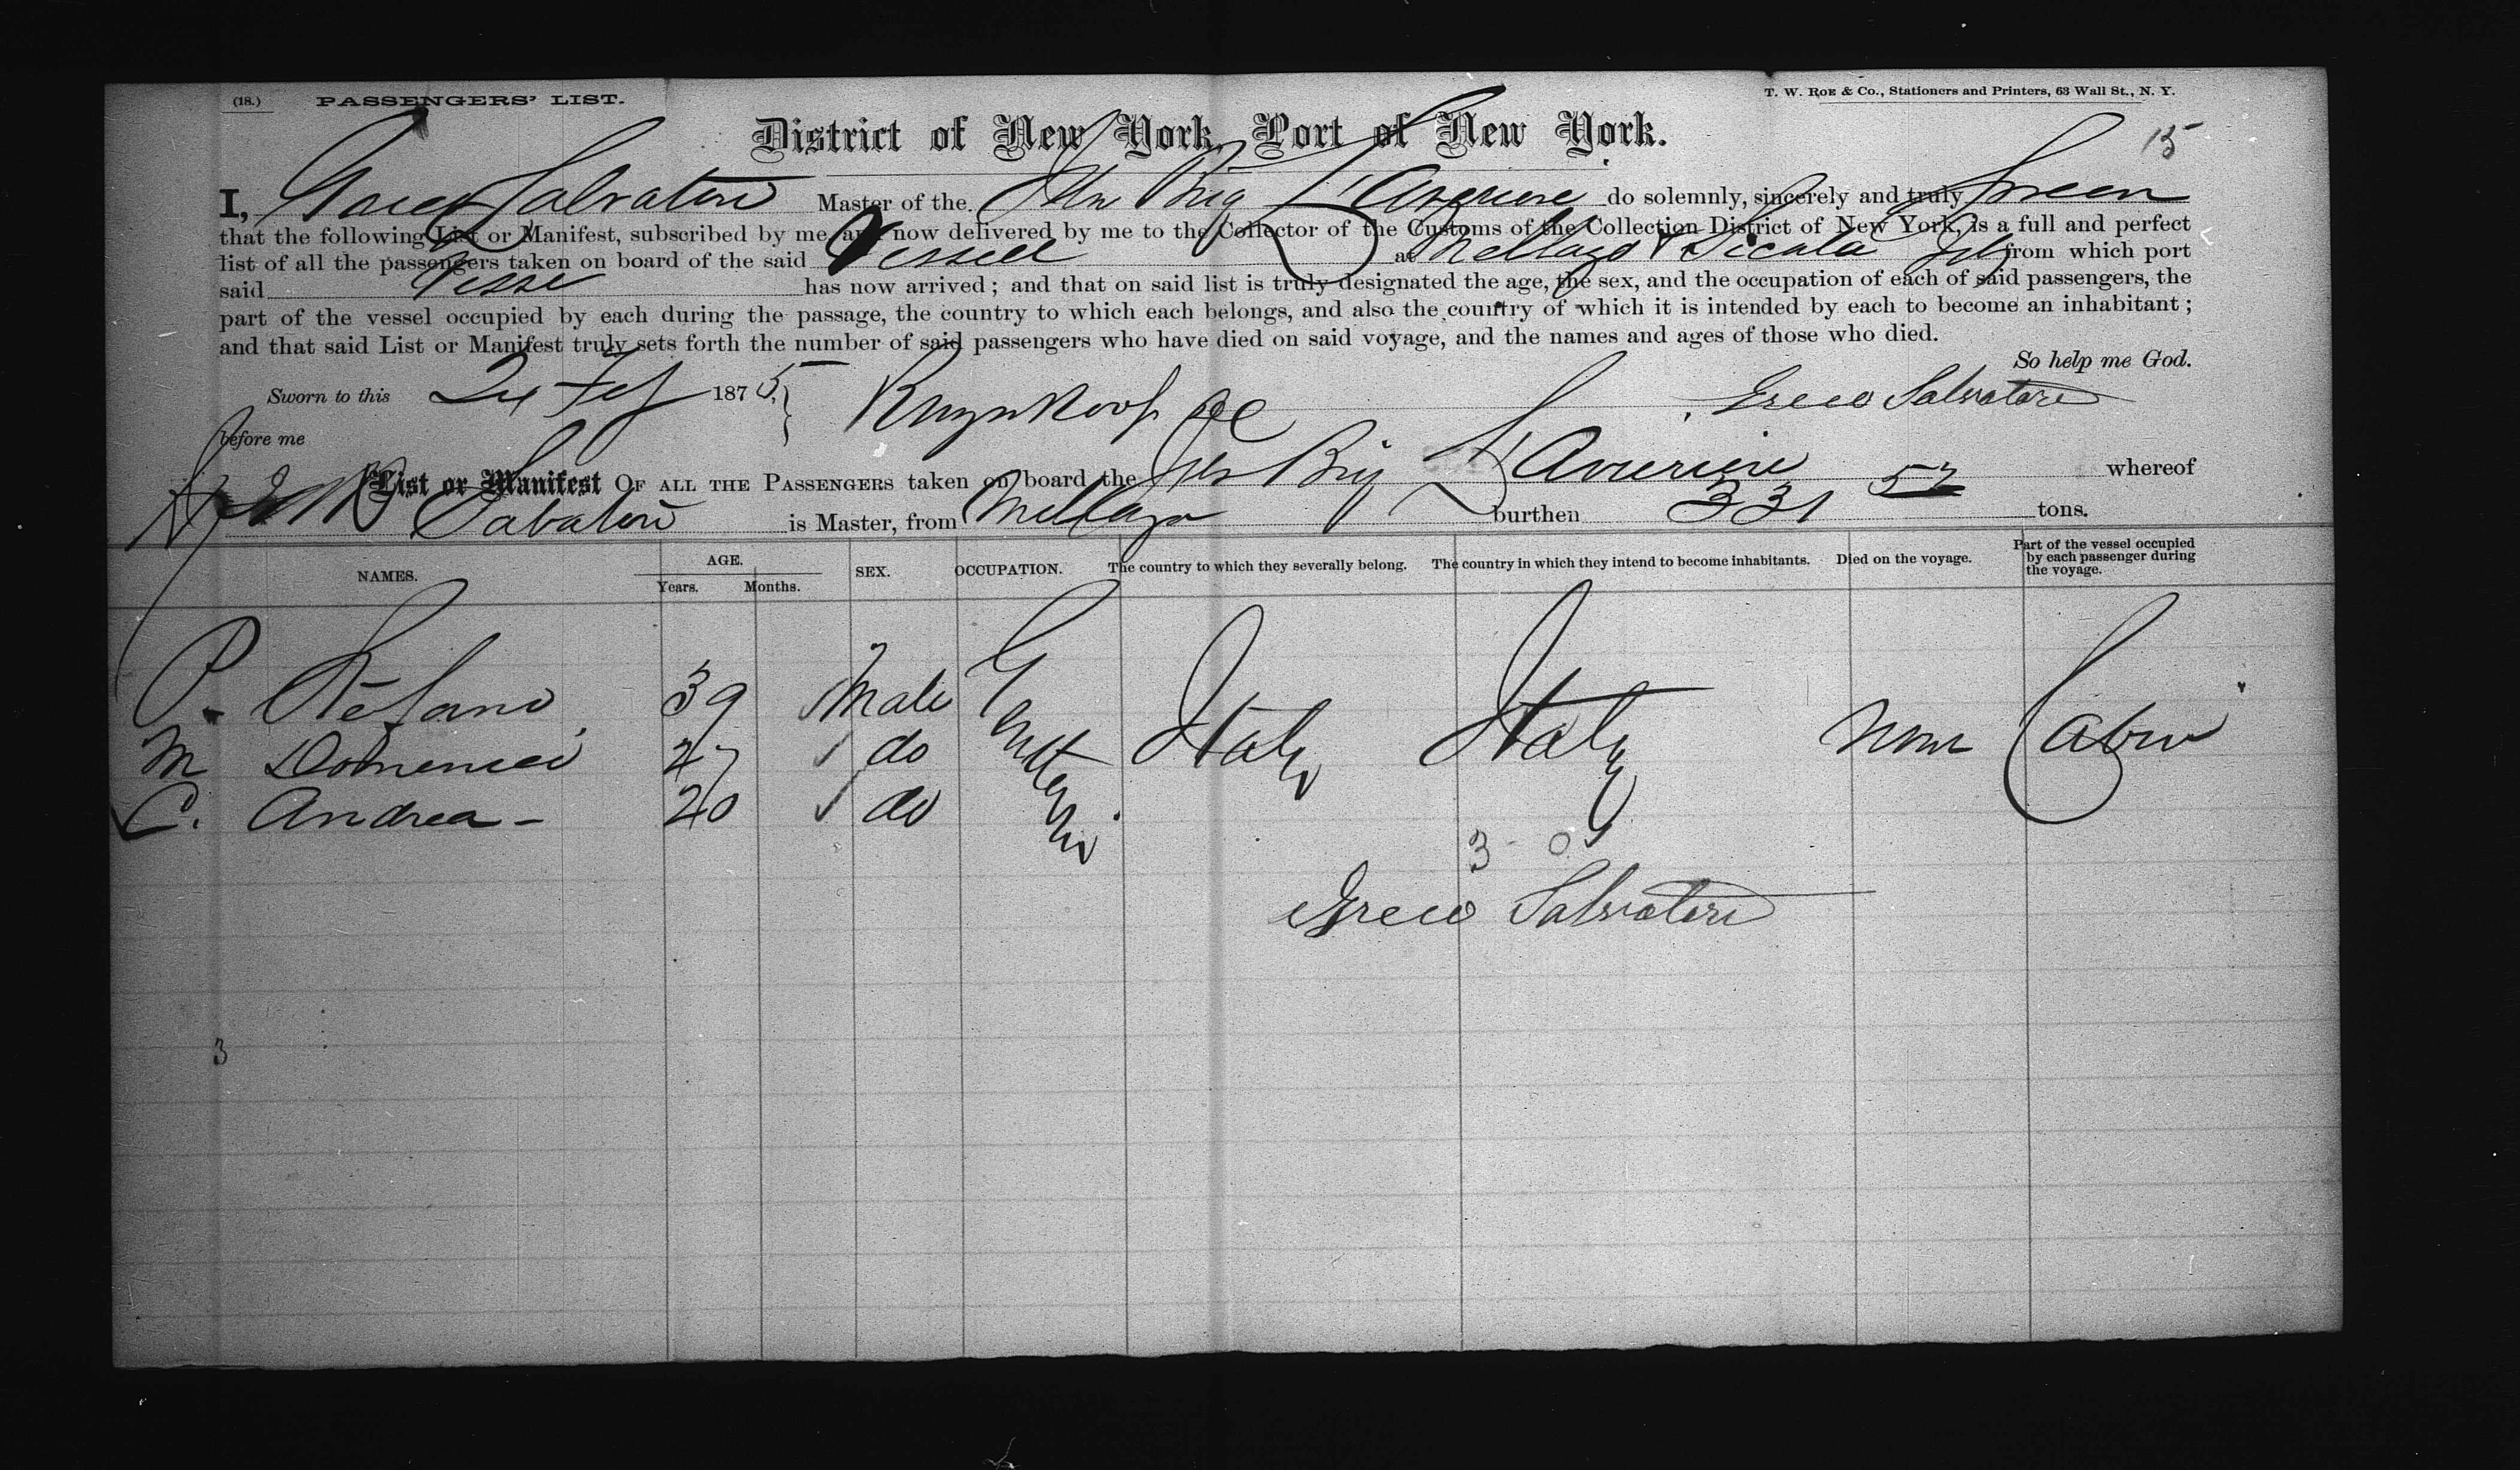 (18.) PASSENGERS' LIST.
T. W. ROE & Co., Stationers and Printers, 63 Wall St., N. Y.
District of New York, Port of New York.
15
I, Salvatore Master of the Brig do solemnly, sincerely and truly
that the following List or Manifest, subscribed by me and now delivered by me to the Collector of the Customs of the Collection District of New York, is a full and perfect
list of all the passengers taken on board of the said Vessell at from which port
said Vessel has now arrived; and that on said list is truly designated the age, the sex, and the occupation of each of said passengers, the
part of the vessel occupied by each during the passage, the country to which each belongs, and also the country of which it is intended by each to become an inhabitant;
and that said List or Manifest truly sets forth the number of said passengers who have died on said voyage, and the names and ages of those who died.
So help me God.
Sworn to this 24 Feb 1875, Greco Salvatore
before me
List or Manifest OF ALL THE PASSENGERS taken on board the Brig whereof
is Master, from Mellazo burthen 331 52 tons.
NAMES. AGE. Years. Months. SEX. OCCUPATION. The country to which they severally belong. The country in which they intend to become inhabitants. Died on the voyage. Part of the vessel occupied by each passenger during the voyage.
P. Stefano 39 Male Italy Italy None Cabin
M Domenico 27 do
C. Andrea - 20 do
3 - 0
Greco Salvatore
3